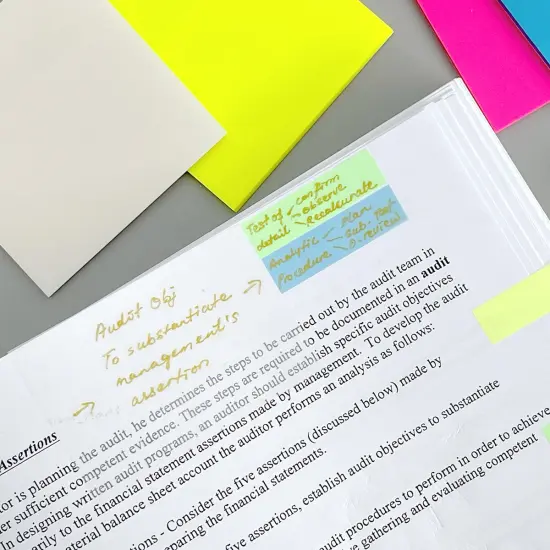 Test of confirm
detail observe
Recalculate
Analytic Plan
Procedure sub. test
O. review
Audit Obj
To substantiate
management's
assertion
Assertions
or is planning the audit, he determines the steps to be carried out by the audit team in
er sufficient competent evidence. These steps are required to be documented in an audit
In designing written audit programs, an auditor should establish specific audit objectives
arily to the financial statement assertions made by management. To develop the audit
aterial balance sheet account the auditor performs an analysis as follows:
tions - Consider the five assertions (discussed below) made by
eparing the financial statements.
five assertions, establish audit objectives to substantiate
audit procedures to perform in order to achieve
ve gathering and evaluating competent